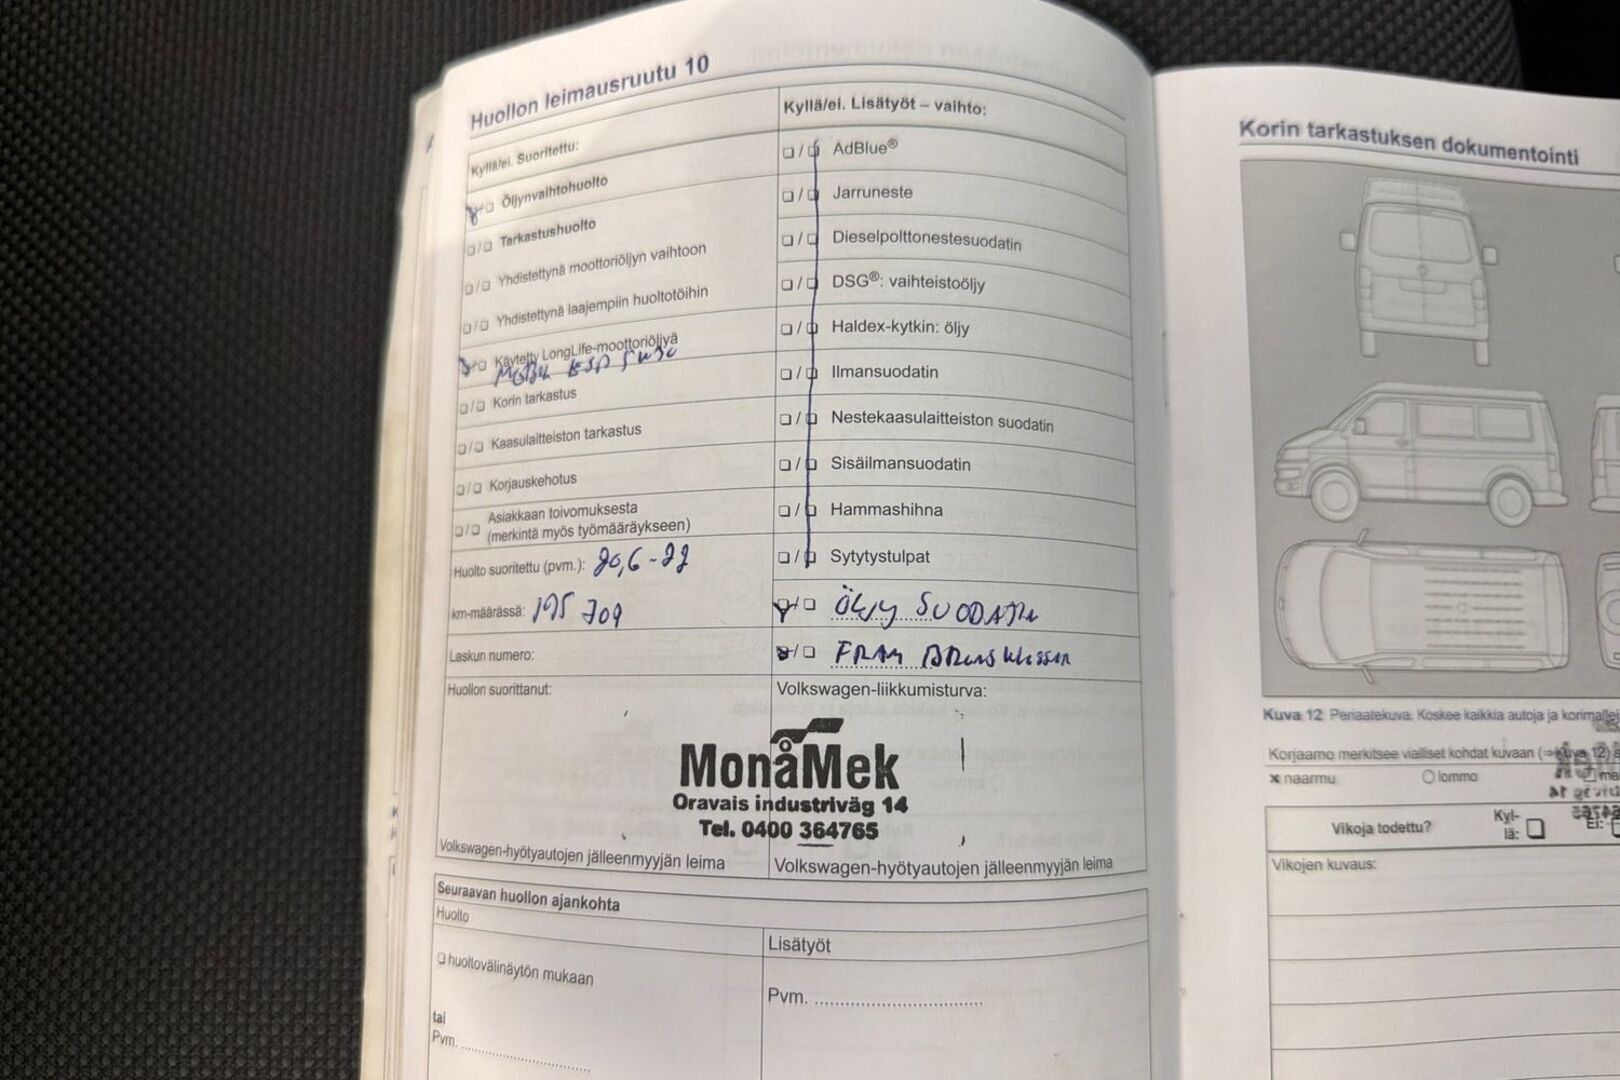 Huollon leimausruutu 10
Kyllä/ei. Suoritettu:
Öljynvaihtohuolto
Tarkastushuolto
Yhdistettynä moottoriöljyn vaihtoon
Yhdistettynä laajempiin huoltotöihin
Käytetty LongLife-moottoriöljyä
Korin tarkastus
Kaasulaitteiston tarkastus
Korjauskehotus
Asiakkaan toivomuksesta
(merkintä myös työmääräykseen)
Huolto suoritettu (pvm.): 20,6-22
km-määrässä: 195 709
Laskun numero:
Huollon suorittanut:
Kyllä/ei. Lisätyöt – vaihto:
AdBlue®
Jarruneste
Dieselpolttonestesuodatin
DSG®: vaihteistoöljy
Haldex-kytkin: öljy
Ilmansuodatin
Nestekaasulaitteiston suodatin
Sisäilmansuodatin
Hammashihna
Sytytystulpat
ÖLJY SUODATIN
FRAM
Volkswagen-liikkumisturva:
MonåMek
Oravais industriväg 14
Tel. 0400 364765
Volkswagen-hyötyautojen jälleenmyyjän leima
Volkswagen-hyötyautojen jälleenmyyjän leima
Seuraavan huollon ajankohta
Huolto
huoltovälinäytön mukaan
tai
Pvm.
Lisätyöt
Pvm.
Korin tarkastuksen dokumentointi
Kuva 12 Periaatekuva. Koskee kaikkia autoja ja
Korjaamo merkitsee vialliset kohdat kuvaan
naarmu
lommo
Vikoja todettu?
Kyl-
lä:
Ei:
Vikojen kuvaus: